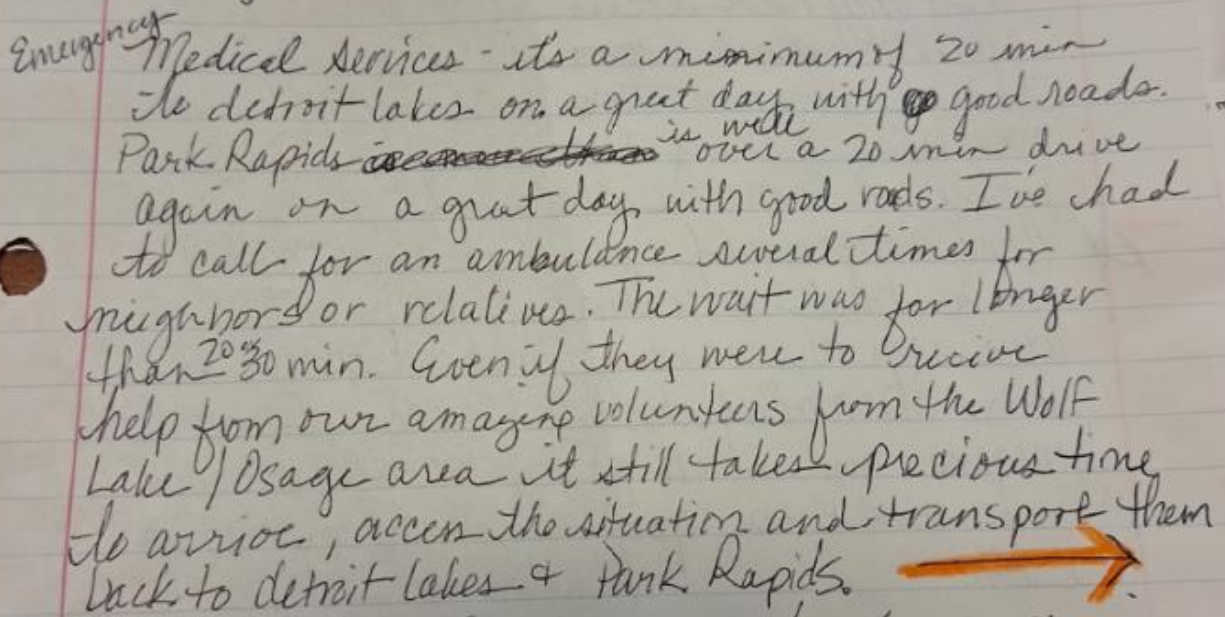 Emergency
Medical Services - it's a minimum of 20 min
to detroit lakes on a great day with good roads.
Park Rapids is well over a 20 min drive
again on a great day with good roads. I've had
to call for an ambulance several times for
neighbors or relatives. The wait was far longer
than 20 or 30 min. Even if they were to recive
help from our amazing volunteers from the Wolf
Lake / Osage area it still takes precious time
to arrive, access the situation and transport them
back to detroit lakes & Park Rapids.